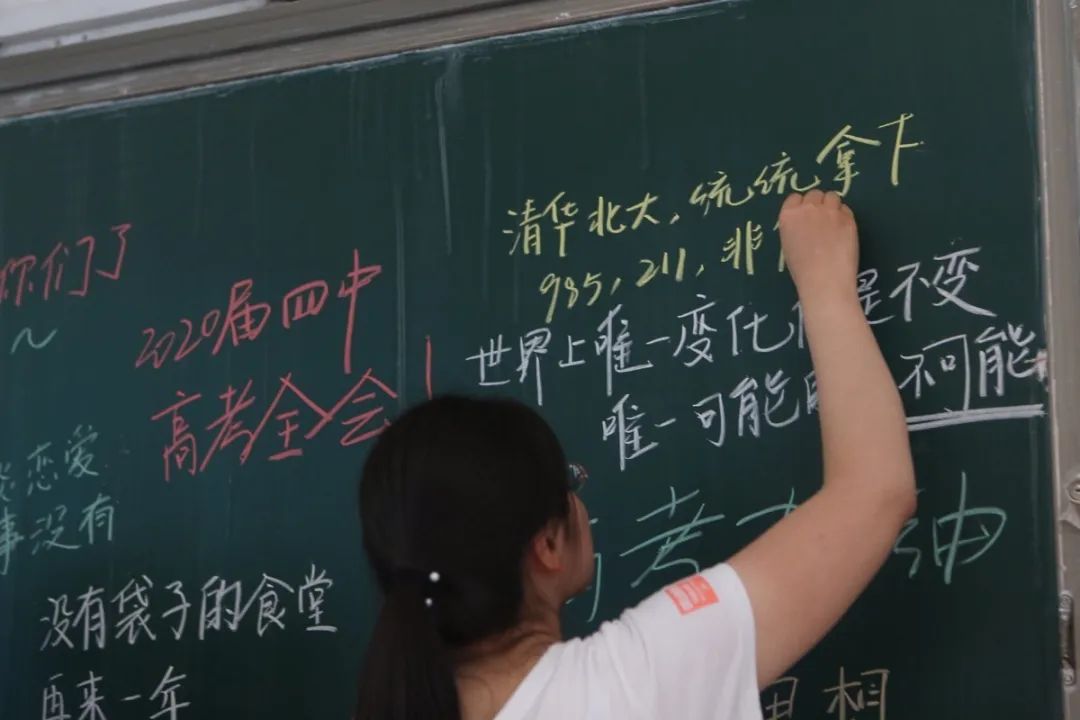 你们了
2020届四中
高考全会！
恋爱
事没有
没有袋子的食堂
再来一年
清华北大，统统拿下
985，211，非
世界上唯一变化 是不变
唯一可能 不可能
高考 油
思想